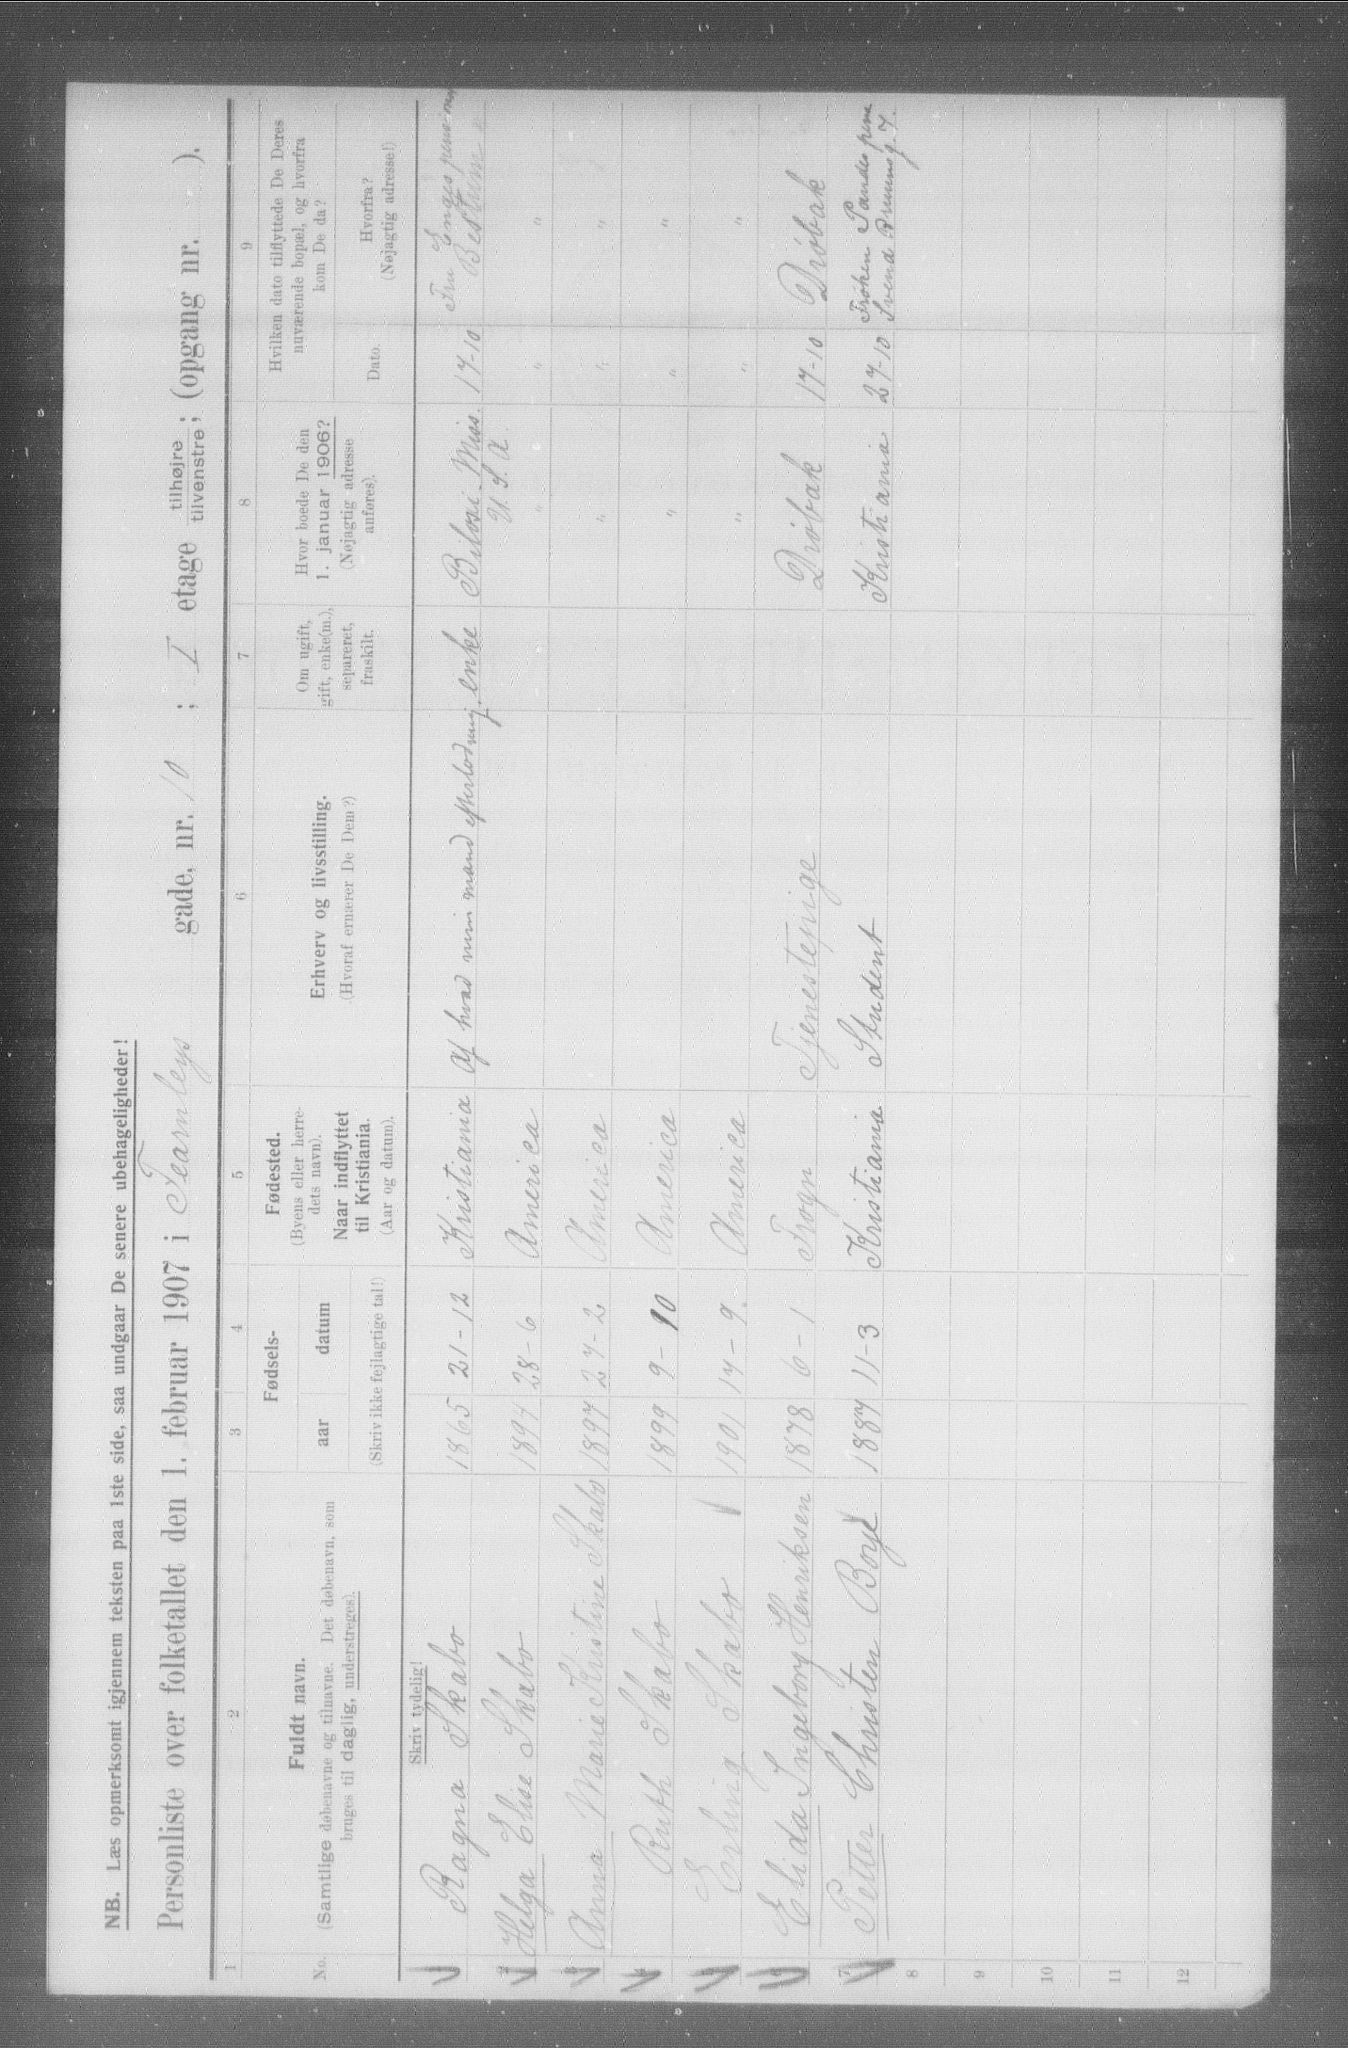 NB. Læs opmerksomt igjennem teksten paa 1ste side, saa undgaar De senere ubehageligheder!
Personliste over folketallet den 1. februar 1907 i Fearnleys gade, nr. 10 ; I etage tilhøjre tilvenstre ; (opgang nr. ).
1 2 3 4 5 6 7 8 9
No.
Fuldt navn.
(Samtlige døbenavne og tilnavne. Det døbenavn, som
bruges til daglig, understreges).
Fødsels-
aar datum
(Skriv ikke fejlagtige tal!)
Fødested.
(Byens eller herre-
dets navn).
Naar indflyttet
til Kristiania.
(Aar og datum).
Erhverv og livsstilling.
(Hvoraf ernærer De Dem?)
Om ugift,
gift, enke(m.),
separeret,
fraskilt.
Hvor boede De den
1. januar 1906?
(Nøjagtig adresse
anføres).
Hvilken dato tilflyttede De Deres
nuværende bopæl, og hvorfra
kom De da?
Dato.
Hvorfra?
(Nøjagtig adresse!)
Skriv tydelig!
Ragna Skabo 1865 21-12 Kristiania Af hvad min mand efterlod mig. enke Biloxi. Miss. U. S. A. 17-10 Fru Enges Bestum
2 Helga Elise Skabo 1894 28-6 America " " "
3 Anna Marie Kristine Skabo 1897 27-2 America " " "
4 Ruth Skabo 1899 9-10 America " " "
5 Erling Skabo 1901 14-9. America " " "
6 Elida Ingeborg Henriksen 1878 6-1 Frogn Tjenestepige Drøbak 17-10 Drøbak
7 Petter Christen Borge 1887 11-3 Kristiania Student Kristiania 27-10 Frøken
8
9
10
11
12